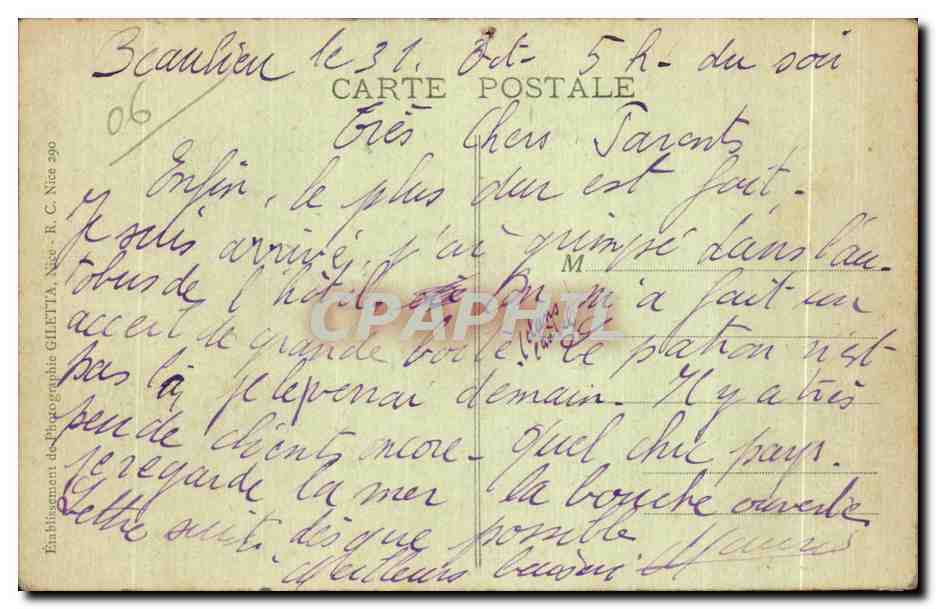 Beaulieu le 31. Oct- 5 h- du soir
CARTE POSTALE
06
Très Chers Parents
Enfin, le plus dur est fait.
Je suis arrivé, j'ai grimpé dans l'au-
M
tobus de l'hôtel. On m'a fait un
accueil de grande Le patron n'est
pas là je le verrai demain. Il y a très
peu de clients encore- Quel chic pays.
je regarde la mer la bouche ouverte
Lettre suit dès que possible
Meilleurs baisers
Établissement de Photographie GILETTA, Nice - R. C. Nice 290
CPAPHIL